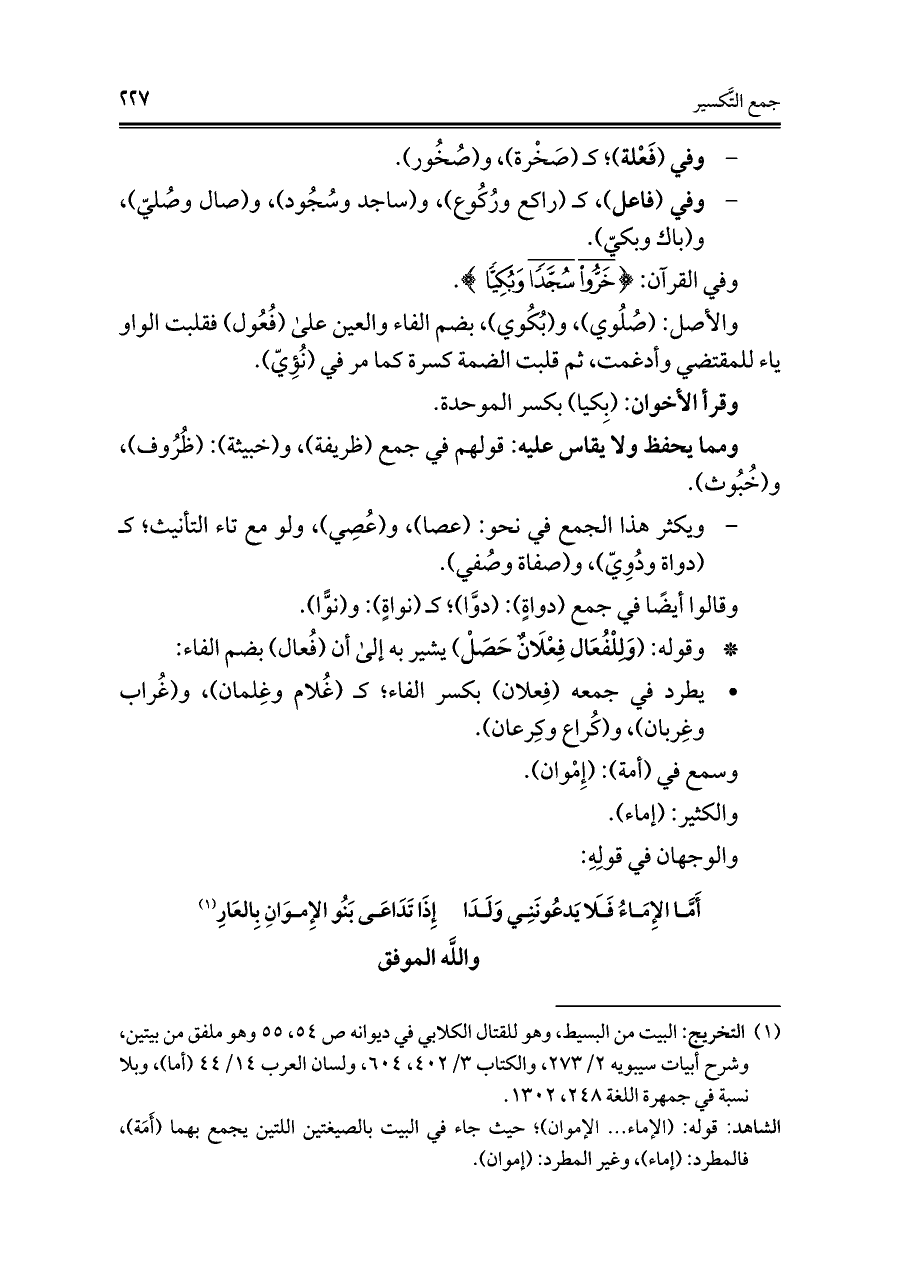 جمع التَّكسير ٢٢٧
- وفي (فَعْلة)؛ كـ (صَخْرة)، و(صُخُور).
- وفي (فاعل)، كـ (راكع ورُكُوع)، و(ساجد وسُجُود)، و(صال وصُليّ)،
و(باك وبكيّ).
وفي القرآن: ﴿خَرُّواْ سُجَّدًا وَبُكِيًّا﴾.
والأصل: (صُلُوي)، و(بُكُوي)، بضم الفاء والعين علىٰ (فُعُول) فقلبت الواو
ياء للمقتضي وأدغمت، ثم قلبت الضمة كسرة كما مر في (نُؤِيّ).
وقرأ الأخوان: (بِكيا) بكسر الموحدة.
ومما يحفظ ولا يقاس عليه: قولهم في جمع (ظريفة)، و(خبيثة): (ظُرُوف)،
و(خُبُوث).
- ويكثر هذا الجمع في نحو: (عصا)، و(عُصِي)، ولو مع تاء التأنيث؛ كـ
(دواة ودُوِيّ)، و(صفاة وصُفي).
وقالوا أيضًا في جمع (دواةٍ): (دوًّا)؛ كـ (نواةٍ): و(نوًّا).
* وقوله: (وَلِلْفُعَال فِعْلَانٌ حَصَلْ) يشير به إلىٰ أن (فُعال) بضم الفاء:
• يطرد في جمعه (فِعلان) بكسر الفاء؛ كـ (غُلام وغِلمان)، و(غُراب
وغِربان)، و(كُراع وكِرعان).
وسمع في (أمة): (إِمْوان).
والكثير: (إماء).
والوجهان في قولِهِ:
أَمَّـا الإِمَـاءُ فَـلَا يَدعُونَنِـي وَلَـدَا إِذَا تَدَاعَـى بَنُو الإِمـوَانِ بِالعَارِ(١)
واللَّه الموفق
(١) التخريج: البيت من البسيط، وهو للقتال الكلابي في ديوانه ص ٥٤، ٥٥ وهو ملفق من بيتين،
وشرح أبيات سيبويه ٢/ ٢٧٣، والكتاب ٣/ ٤٠٢، ٦٠٤، ولسان العرب ١٤/ ٤٤ (أما)، وبلا
نسبة في جمهرة اللغة ٢٤٨، ١٣٠٢.
الشاهد: قوله: (الإماء... الإموان)؛ حيث جاء في البيت بالصيغتين اللتين يجمع بهما (أَمَة)،
فالمطرد: (إماء)، وغير المطرد: (إموان).